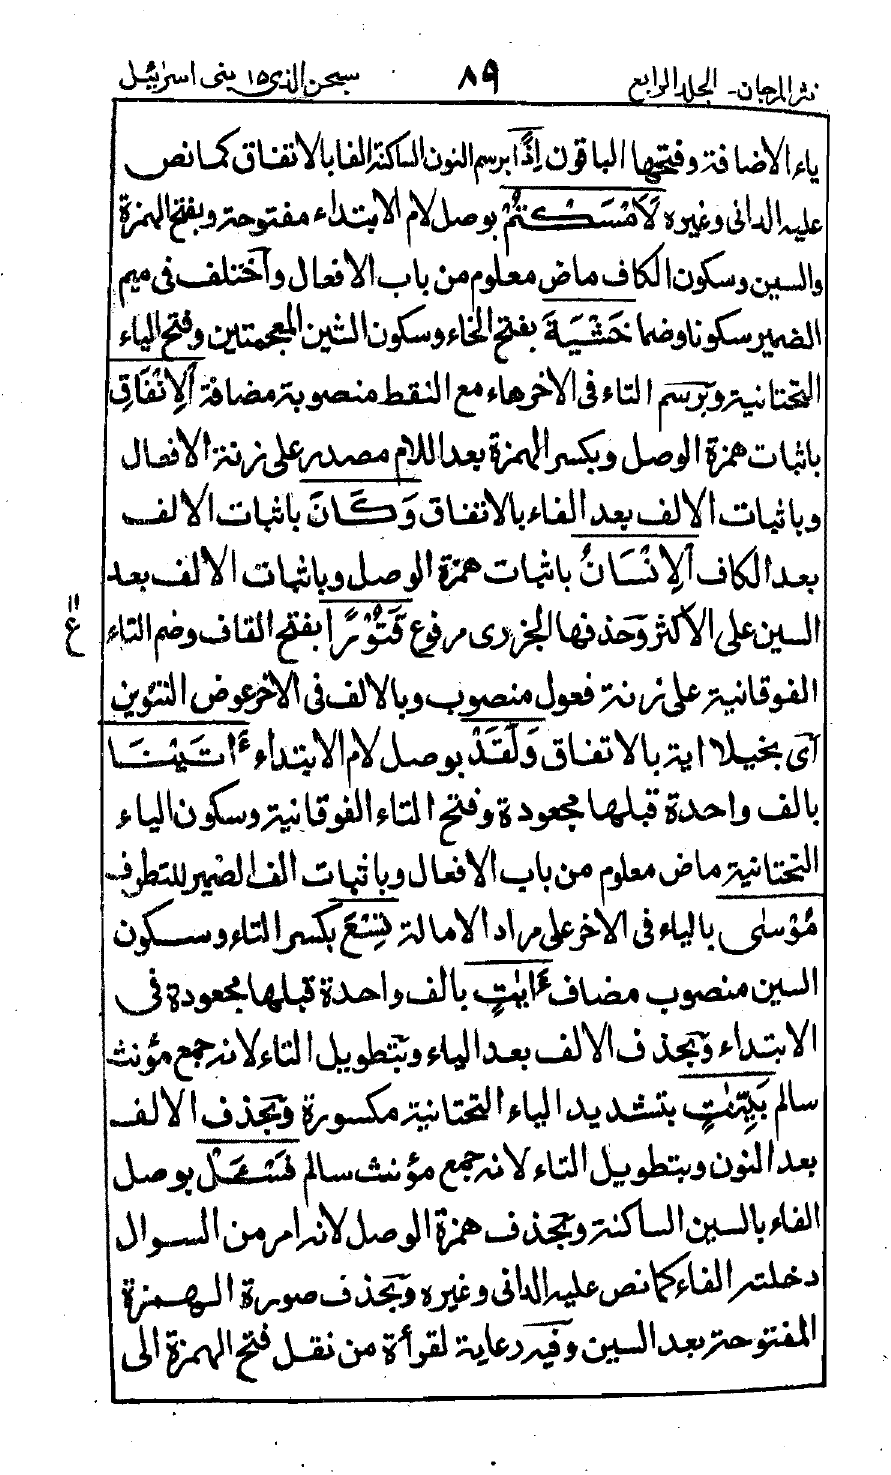 نثر المرجان - الجلد الرابع ٨٩ سبحن الذی ١٥ بنی اسرائیل
یاء الاضافة وفتحها الباقون اِذًا برسم النون الساكنة الفا بالاتفاق كما نص
علیه الدانی وغیره لَاَمْسَكْتُمْ بوصل لام الابتداء مفتوحة وبفتح الهمزة
والسین وسكون الكاف ماض معلوم من باب الافعال واختلف فی میم
الضمیر سكونا وضما خَشْیَةَ بفتح الخاء وسكون الشین المعجمتین وفتح الیاء
التحتانیة وبرسم التاء فی الاخر هاء مع النقط منصوبة مضافة اَلْاِنْفَاقِ
باثبات همزة الوصل وبكسر الهمزة بعد اللام مصدر علی زنة الافعال
وباثبات الالف بعد الفاء بالاتفاق وَكَانَ باثبات الالف
بعد الكاف اَلْاِنْسَانُ باثبات همزة الوصل وباثبات الالف بعد
السین علی الاكثر وحذفها الجزری مرفوع قَتُوْرًا بفتح القاف وضم التاء
الفوقانیة علی زنة فعول منصوب وبالالف فی الاخر عوض التنوین
ای بخیلا ایة بالاتفاق وَلَقَدْ بوصل لام الابتداء ءَاتَیْنَا
بالف واحدة قبلها مجعودة وفتح التاء الفوقانیة وسكون الیاء
التحتانیة ماض معلوم من باب الافعال وباثبات الف الضمیر للتطرف
مُوْسٰی بالیاء فی الاخر علی مراد الامالة تِسْعَ بكسر التاء وسكون
السین منصوب مضاف ءَایٰتٍ بالف واحدة قبلها مجعودة فی
الابتداء وبحذف الالف بعد الیاء وبتطویل التاء لانه جمع مؤنث
سالم بَیِّنٰتٍ بتشدید الیاء التحتانیة مكسورة وبحذف الالف
بعد النون وبتطویل التاء لانه جمع مؤنث سالم فَسْـَٔلْ بوصل
الفاء بالسین الساكنة وبحذف همزة الوصل لانه امر من السوال
دخلته الفاء كما نص علیه الدانی وغیره وبحذف صورة الهمزة
المفتوحة بعد السین وفیه رعایة لقرأة من نقل فتح الهمزة الی
١١
ع